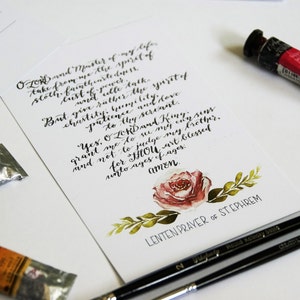 O LORD and Master of my life,
take from me the spirit of
sloth, faintheartedness,
lust of power, talk.
and idle talk.
But give rather the spirit of
chastity, humility, love
patience and
to thy servant.
Yes, O LORD and King, sins
grant me to see my brother,
and not to judge my
for THOU art blessed
unto ages of ages
amen.
LENTEN PRAYER OF ST EPHREM